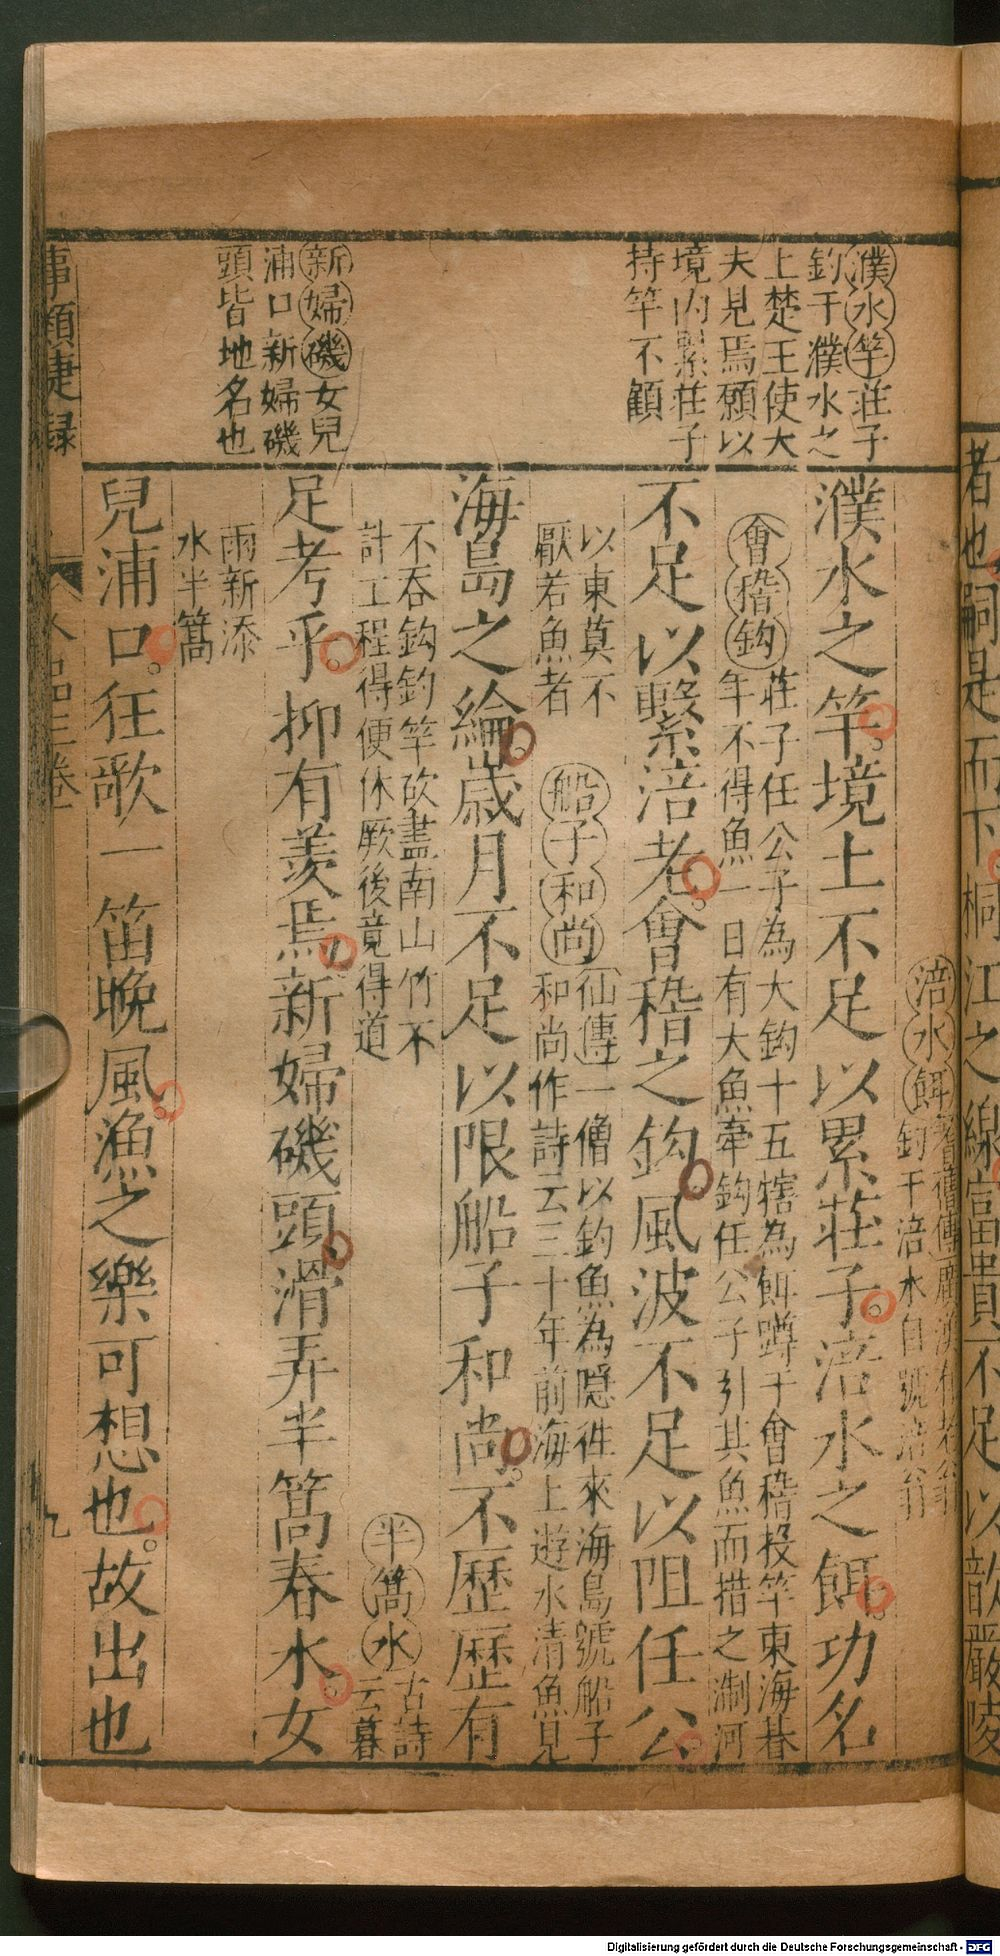 濮水竿莊子
釣于濮水之
上楚王使大
夫見焉願以
境內累莊子
持竿不顧
新婦磯女兒
浦口新婦磯
頭皆地名也
涪水餌
釣于涪水自號涪翁
濮水之竿境土不足以累莊子涪水之餌功名
會稽鈎莊子任公子為大鈎十五犗為餌蹲于會稽投竿東海朞
年不得魚一日有大魚牽鈎任公子引其魚而措之淛河
不足以繫涪老會稽之鈎風波不足以阻任公
以東莫不
厭若魚者
船子和尚仙傳一僧以釣魚為隱徃來海島號船子
和尚作詩云三十年前海上遊水清魚見
海島之綸歲月不足以限船子和尚不歷歷有
不吞鈎釣竿砍盡南山竹不
計工程得便休厥後竟得道
半篙水古詩
云暮
足考乎抑有羨焉新婦磯頭滑弄半篙春水女
雨新添
水半篙
兒浦口狂歌一笛晚風漁之樂可想也故出也
事類捷錄
九
者也嗣是而下桐江之線富貴不足以歆嚴陵
Digitalisierung gefördert durch die Deutsche Forschungsgemeinschaft - DFG